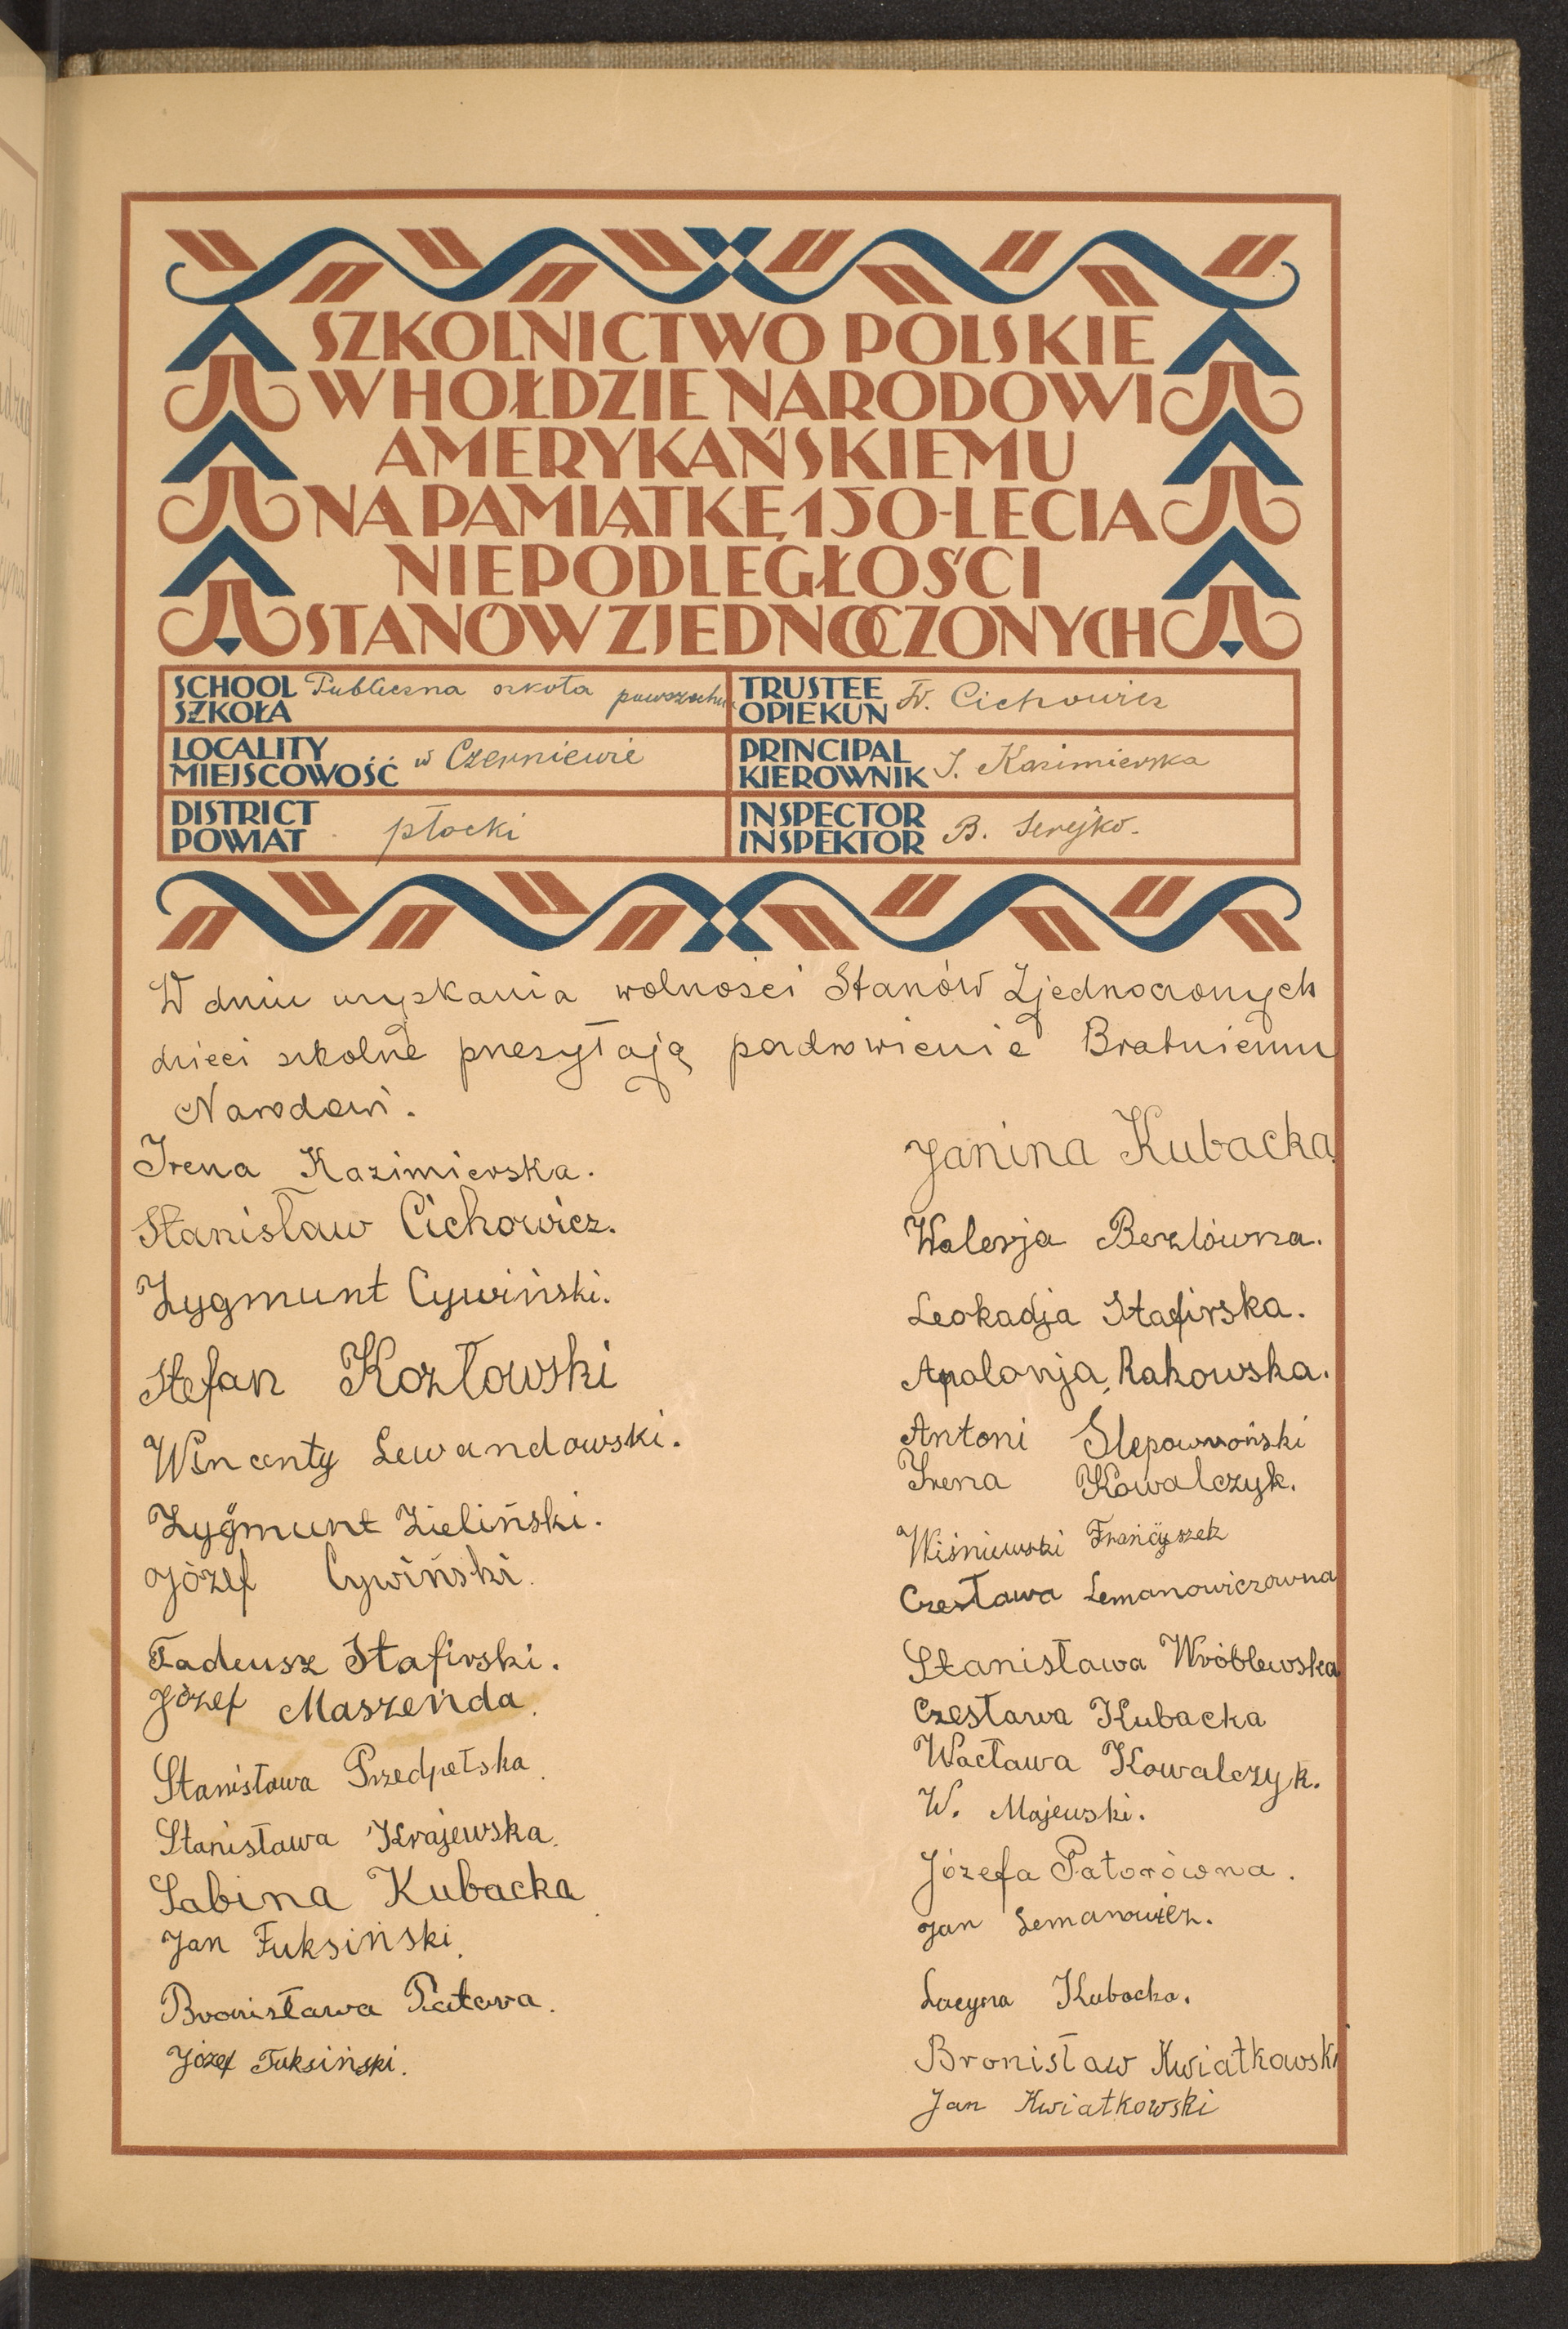 SZKOLNICTWO POLSKIE
W HOŁDZIE NARODOWI
AMERYKAŃSKIEMU
NA PAMIĄTKĘ 150-LECIA
NIEPODLEGŁOŚCI
STANÓW ZJEDNOCZONYCH
SCHOOL Publiczna szkoła powszechna
SZKOŁA
TRUSTEE Fr. Cichowicz
OPIEKUN
LOCALITY w Czerniewie
MIEJSCOWOŚĆ
PRINCIPAL I. Kazimierska
KIEROWNIK
DISTRICT płocki
POWIAT
INSPECTOR B. Serejko.
INSPEKTOR
W dniu uzyskania wolności Stanów Zjednoczonych
dzieci szkolne przesyłają pozdrowienie Bratniemu
Narodowi.
Irena Kazimierska.
Stanisław Cichowicz.
Zygmunt Cywiński.
Stefan Kozłowski
Wincenty Lewandowski.
Zygmunt Zieliński.
Józef Cywiński.
Tadeusz Stafirski.
Józef Maszenda.
Stanisława Przedpełska.
Stanisława Krajewska.
Sabina Kubacka.
Jan Fuksiński.
Bronisława Patora.
Józef Fuksiński.
Janina Kubacka.
Walerja Berzlówna.
Leokadja Stafirska.
Apolonja Rakowska.
Antoni Ślepowroński
Irena Kowalczyk.
Wiśniewski Franciszek
Czesława Lemanowiczowna
Stanisława Wróblewska
Czesława Kubacka
Wacława Kowalczyk.
W. Majewski.
Józefa Patorówna.
Jan Lemanowicz.
Lucyna Kubacka.
Bronisław Kwiatkowski
Jan Kwiatkowski